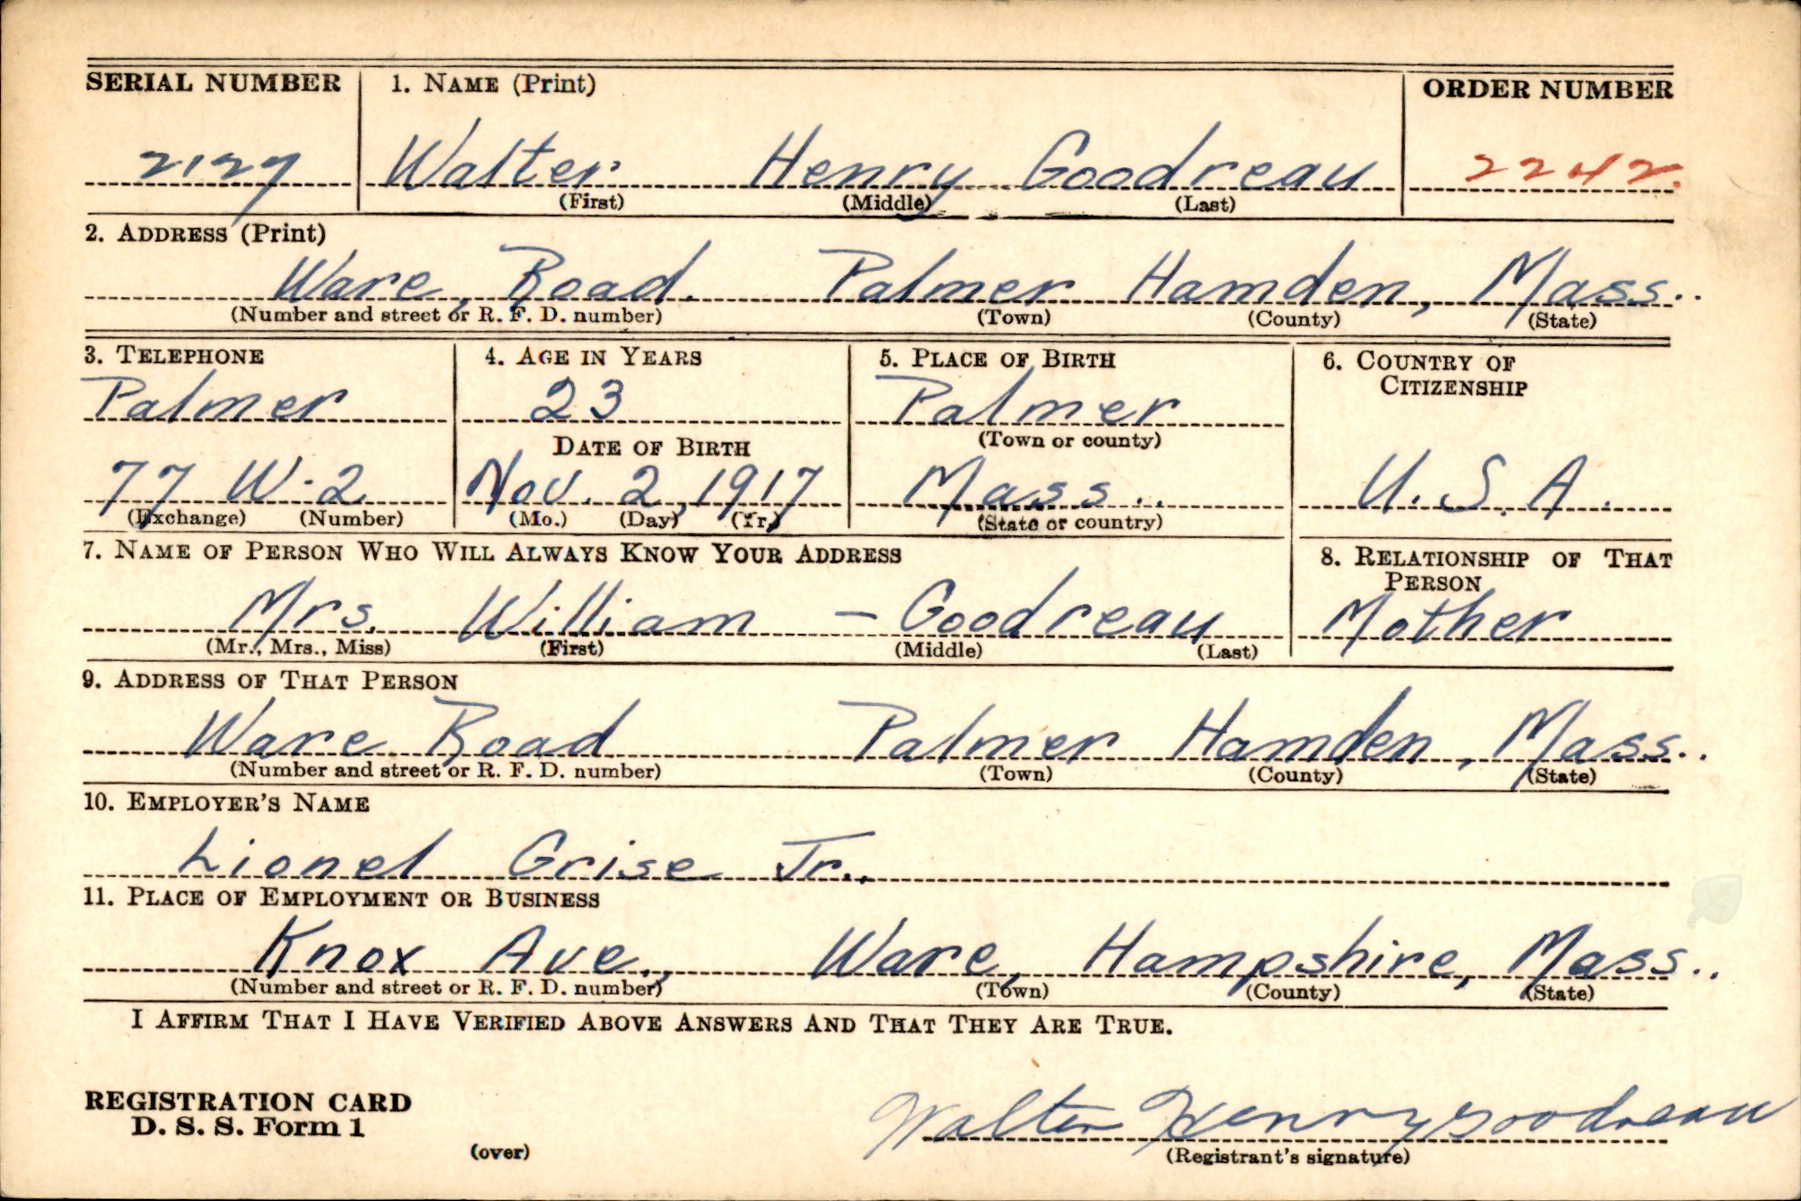 SERIAL NUMBER 1. NAME (Print) ORDER NUMBER
2127 Walter Henry Goodreau 2242.
(First) (Middle) (Last)
2. ADDRESS (Print)
Ware, Road. Palmer Hamden, Mass..
(Number and street or R. F. D. number) (Town) (County) (State)
3. TELEPHONE 4. AGE IN YEARS 5. PLACE OF BIRTH 6. COUNTRY OF CITIZENSHIP
Palmer 23 Palmer
DATE OF BIRTH (Town or county)
77 W-2 Nov. 2, 1917 Mass.. U.S.A.
(Exchange) (Number) (Mo.) (Day) (Yr.) (State or country)
7. NAME OF PERSON WHO WILL ALWAYS KNOW YOUR ADDRESS 8. RELATIONSHIP OF THAT PERSON
Mrs. William - Goodreau Mother
(Mr., Mrs., Miss) (First) (Middle) (Last)
9. ADDRESS OF THAT PERSON
Ware Road Palmer Hamden, Mass..
(Number and street or R. F. D. number) (Town) (County) (State)
10. EMPLOYER'S NAME
Lionel Grise Jr..
11. PLACE OF EMPLOYMENT OR BUSINESS
Knox Ave., Ware, Hampshire, Mass..
(Number and street or R. F. D. number) (Town) (County) (State)
I AFFIRM THAT I HAVE VERIFIED ABOVE ANSWERS AND THAT THEY ARE TRUE.
REGISTRATION CARD
D. S. S. Form 1 Walter Henry Goodreau
(over) (Registrant's signature)